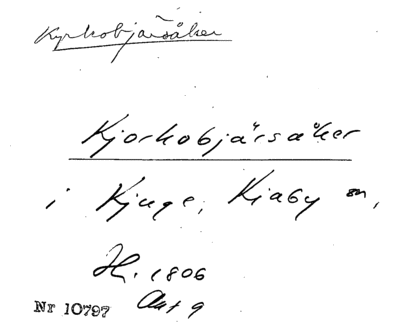 Kyrkobjärsåker
Kjorkobjärsåker
i Kjuge, Kiaby sn,
H. 1806
Nr 10797 Akt 9